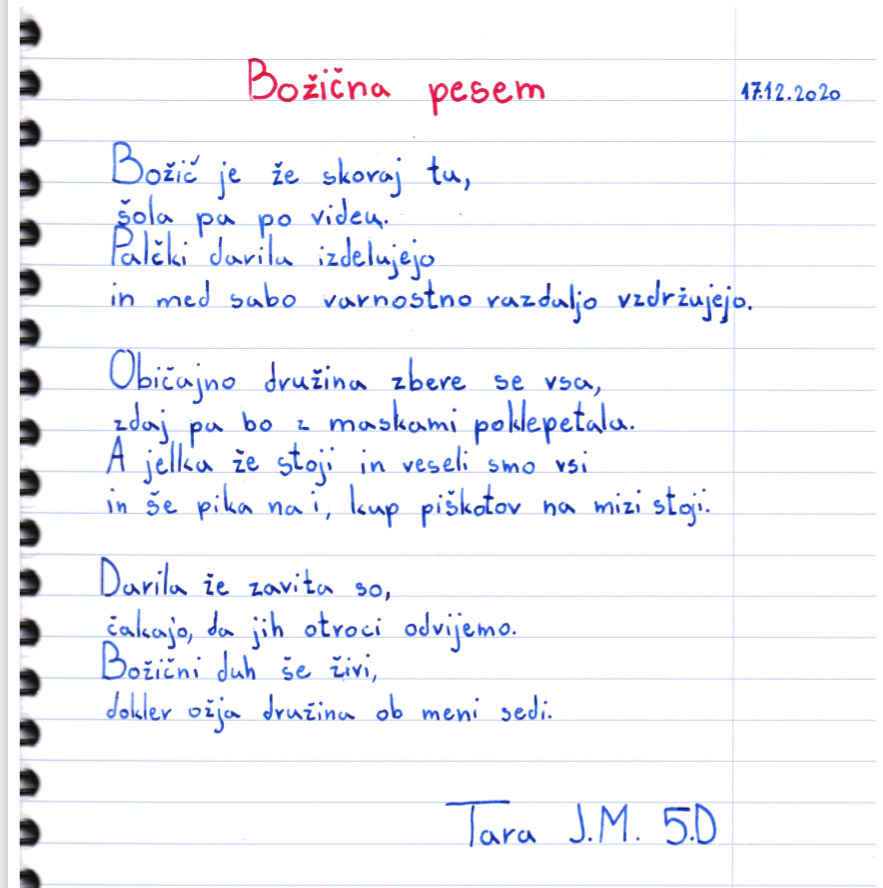 Božična pesem 17.12.2020
Božič je že skoraj tu,
šola pa po videu.
Palčki darila izdelujejo
in med sabo varnostno razdaljo vzdržujejo.
Običajno družina zbere se vsa,
zdaj pa bo z maskami poklepetala.
A jelka že stoji in veseli smo vsi
in še pika na i, kup piškotov na mizi stoji.
Darila že zavita so,
čakajo, da jih otroci odvijemo.
Božični duh še živi,
dokler ožja družina ob meni sedi.
Tara J.M. 5.D